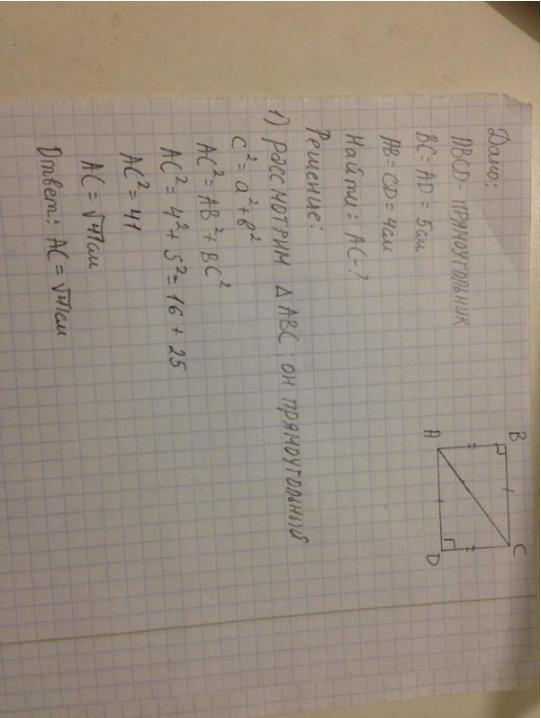 Дано:
ABCD - прямоугольник
BC = AD = 5 см
AB = CD = 4 см
Найти: AC - ?
Решение:
1) рассмотрим Δ ABC; он прямоугольный
c² = a² + b²
AC² = AB² + BC²
AC² = 4² + 5² = 16 + 25
AC² = 41
AC = √41 см
Ответ: AC = √41 см
B
C
A
D